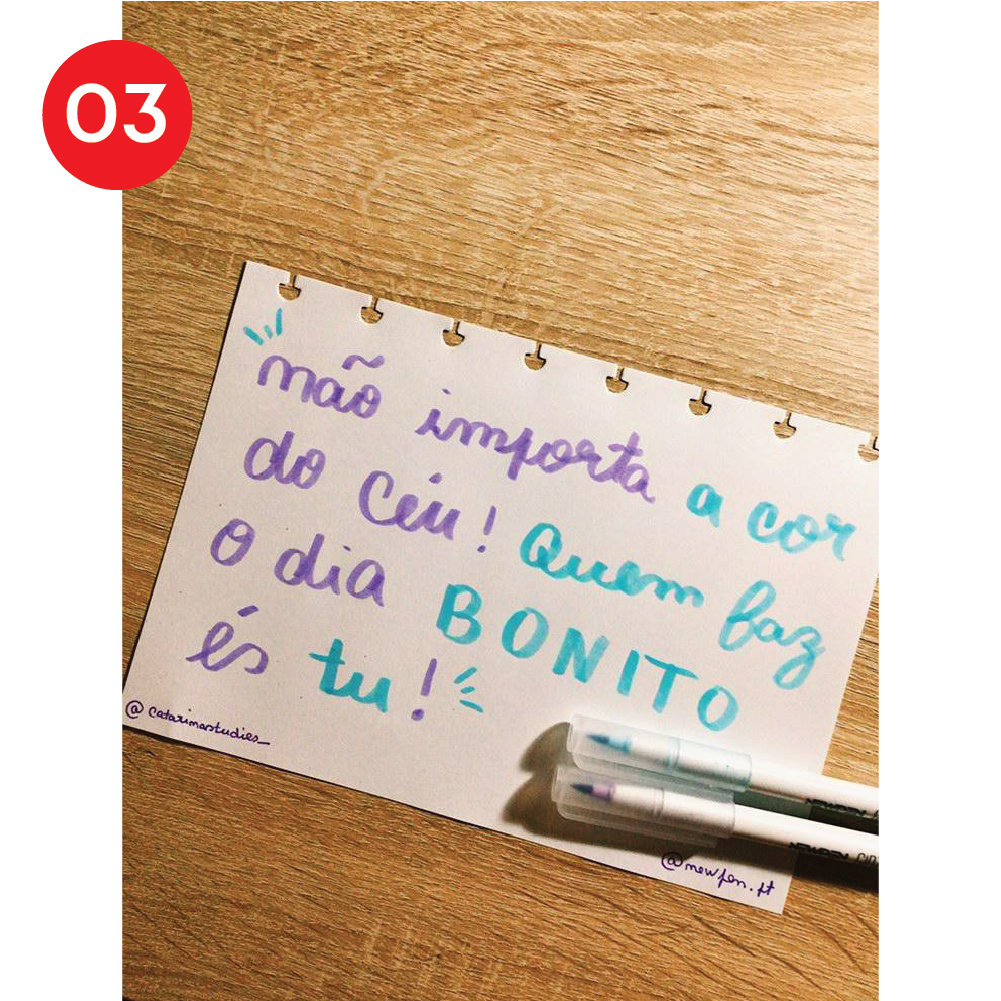 03
não importa a cor
do céu! Quem faz
o dia BONITO
és tu!
@catarinastudies_
NEWPEN
NEWPEN
@newpen.pt